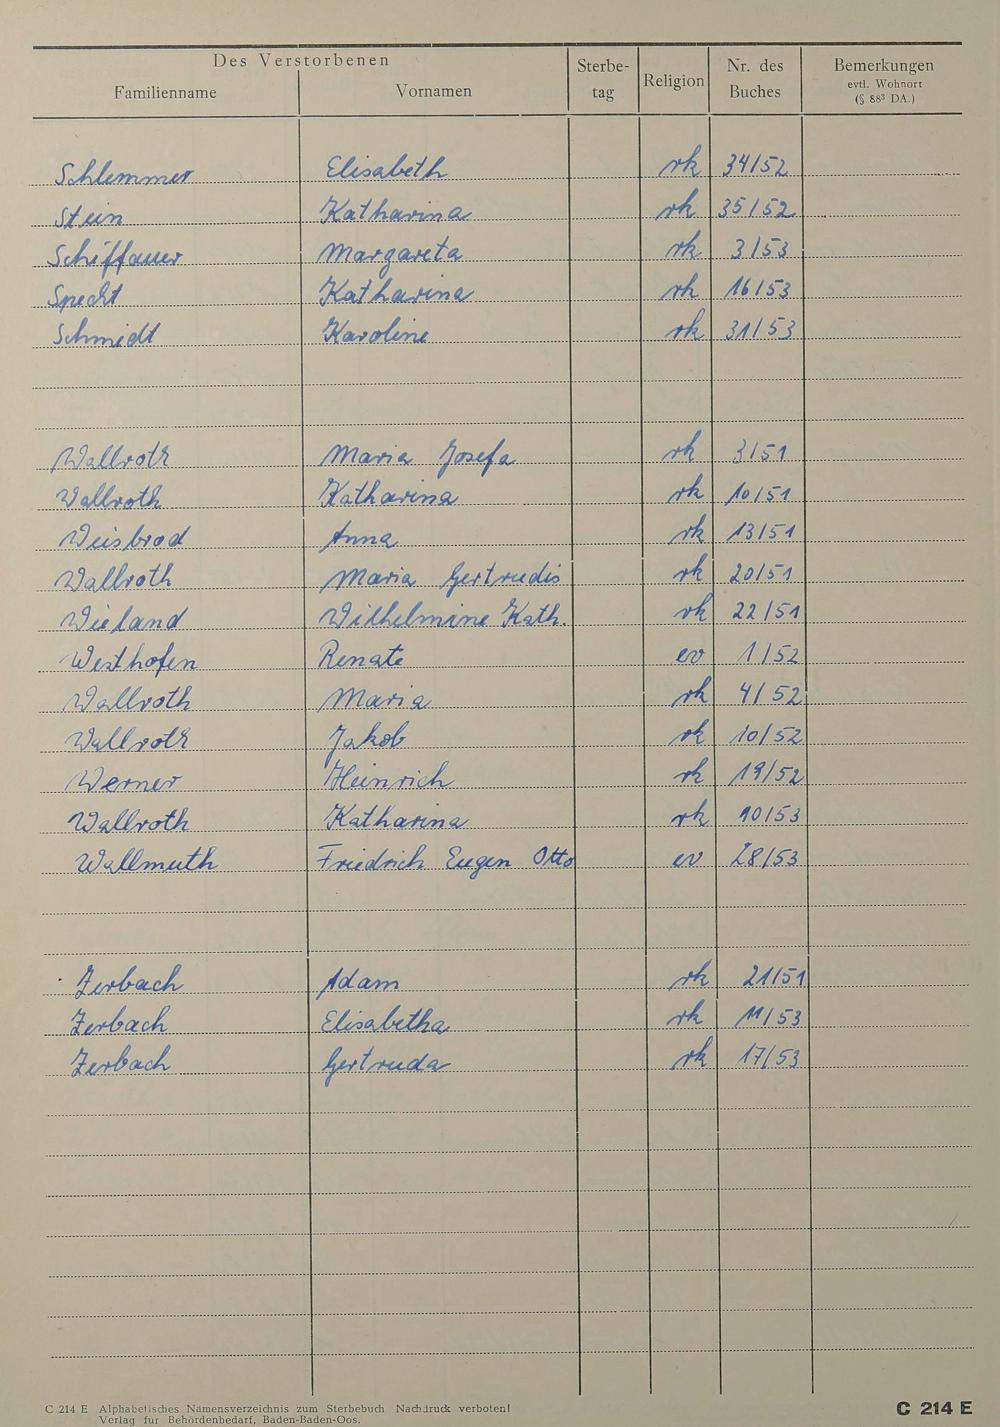 Des Verstorbenen
Familienname Vornamen Sterbe-tag Religion Nr. des Buches Bemerkungen evtl. Wohnort (§ 88³ DA.)
Schlemmer Elisabeth rk 34/52
Stein Katharina rk 35/52
Schiffauer Margareta rk 3/53
Specht Katharina rk 16/53
Schmidt Karoline rk 31/53
Wallroth Maria Josefa rk 3/51
Wallroth Katharina rk 10/51
Weisbrod Anna rk 13/51
Wallroth Maria Gertrudis rk 20/51
Wieland Wilhelmine Kath. rk 22/51
Westhofen Renate ev 1/52
Wallroth Maria rk 4/52
Wallroth Jakob rk 10/52
Werner Heinrich rk 19/52
Wallroth Katharina rk 10/53
Wallmuth Friedrich Eugen Otto ev 28/53
Zerbach Adam rk 21/51
Zerbach Elisabetha rk 11/53
Zerbach Gertruda rk 17/53
C 214 E Alphabetisches Namensverzeichnis zum Sterbebuch Nachdruck verboten! C 214 E
Verlag für Behördenbedarf, Baden-Baden-Oos.